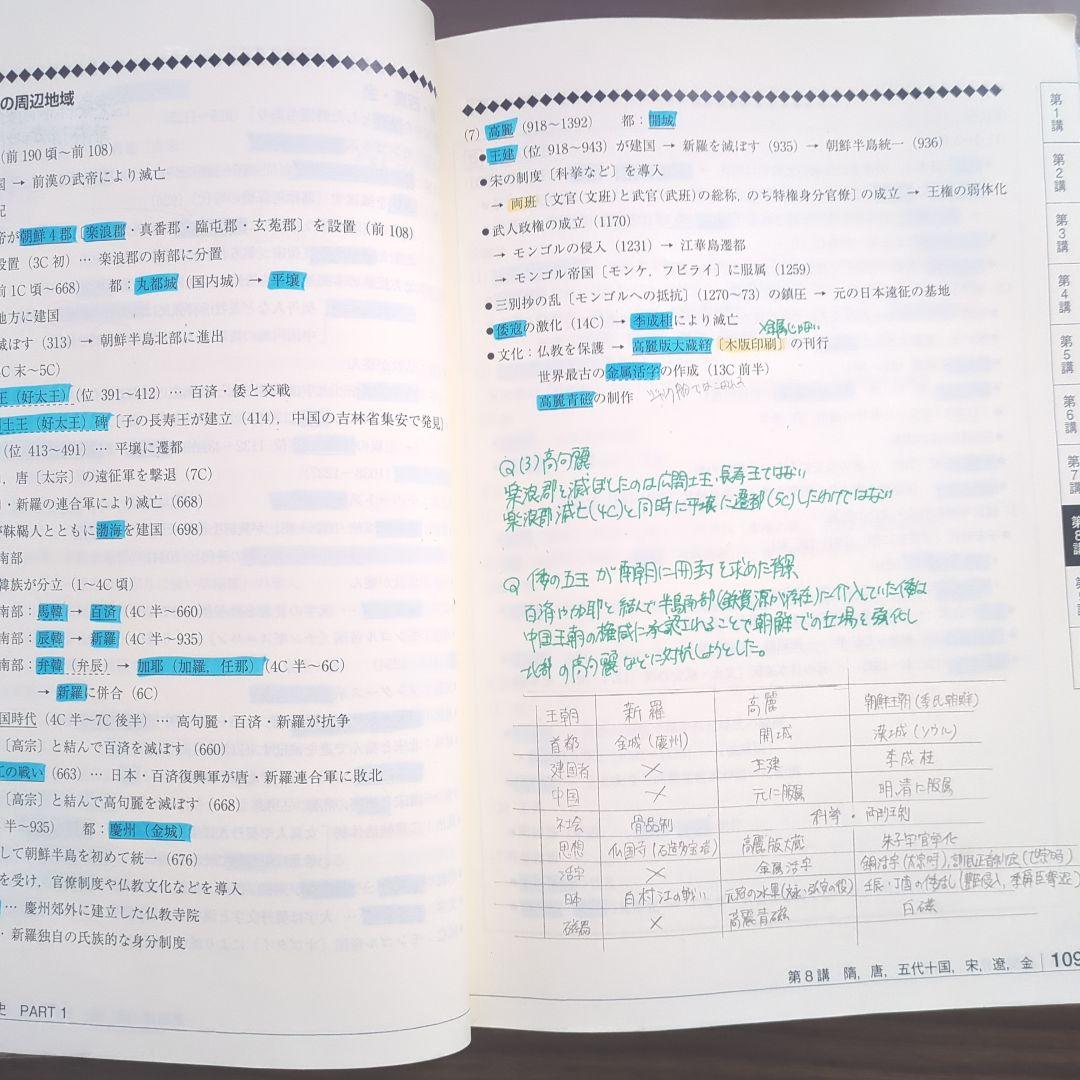 の周辺地域
（前190頃～前108）
国 → 前漢の武帝により滅亡
記
帝が朝鮮4郡〔楽浪郡・真番郡・臨屯郡・玄菟郡〕を設置（前108）
設置（3C初）… 楽浪郡の南部に分置
前1C頃～668） 都：丸都城（国内城）→ 平壌
地方に建国
滅ぼす（313）→ 朝鮮半島北部に進出
4C末～5C）
王（好太王）（位 391～412）… 百済・倭と交戦
開土王（好太王）碑〔子の長寿王が建立（414），中国の吉林省集安で発見〕
（位 413～491）… 平壌に遷都
，唐〔太宗〕の遠征軍を撃退（7C）
・新羅の連合軍により滅亡（668）
が靺鞨人とともに渤海を建国（698）
南部
韓族が分立（1～4C頃）
南部：馬韓 → 百済（4C半～660）
南部：辰韓 → 新羅（4C半～935）
南部：弁韓（弁辰）→ 加耶（加羅，任那）（4C半～6C）
→ 新羅に併合（6C）
国時代（4C半～7C後半）… 高句麗・百済・新羅が抗争
〔高宗〕と結んで百済を滅ぼす（660）
江の戦い（663）… 日本・百済復興軍が唐・新羅連合軍に敗北
〔高宗〕と結んで高句麗を滅ぼす（668）
半～935） 都：慶州（金城）
して朝鮮半島を初めて統一（676）
を受け，官僚制度や仏教文化などを導入
… 慶州郊外に建立した仏教寺院
… 新羅独自の氏族的な身分制度
史 PART 1
(7) 高麗（918～1392） 都：開城
●王建（位 918～943）が建国 → 新羅を滅ぼす（935）→ 朝鮮半島統一（936）
●宋の制度〔科挙など〕を導入
→ 両班〔文官（文班）と武官（武班）の総称，のち特権身分官僚〕の成立 → 王権の弱体化
●武人政権の成立（1170）
→ モンゴルの侵入（1231）→ 江華島遷都
→ モンゴル帝国〔モンケ，フビライ〕に服属（1259）
●三別抄の乱〔モンゴルへの抵抗〕（1270～73）の鎮圧 → 元の日本遠征の基地
●倭寇の激化（14C）→ 李成桂により滅亡
金属じゃない
●文化：仏教を保護 → 高麗版大蔵経〔木版印刷〕の刊行
世界最古の金属活字の作成（13C前半）
高麗青磁の製作
Q (3) 高句麗
楽浪郡を滅ぼしたのは広開土王、長寿王ではない
楽浪郡滅亡(4C)と同時に平壌に遷都(5C)したわけではない
Q 倭の五王が南朝に冊封を求めた背景
百済や加耶と結んで半島南部(鉄資源が存在)に介入していた倭は
中国王朝の権威に承認されることで朝鮮での立場を強化し
北部の高句麗などに対抗しようとした。
王朝 新羅 高麗 朝鮮王朝(李氏朝鮮)
首都 金城(慶州) 開城 漢城(ソウル)
建国者 × 王建 李成桂
中国 × 元に服属 明、清に服属
社会 骨品制 科挙・両班制
思想 仏国寺(石造多宝塔) 高麗版大蔵 朱子学官学化
活字 × 金属活字 銅活字(太宗時)、訓民正音制定(世宗時)
日本 白村江の戦い 元寇の水軍(文永・弘安の役) 壬辰・丁酉の倭乱
磁器 × 高麗青磁 白磁
第8講 隋，唐，五代十国，宋，遼，金 109
第1講
第2講
第3講
第4講
第5講
第6講
第7講
第8講